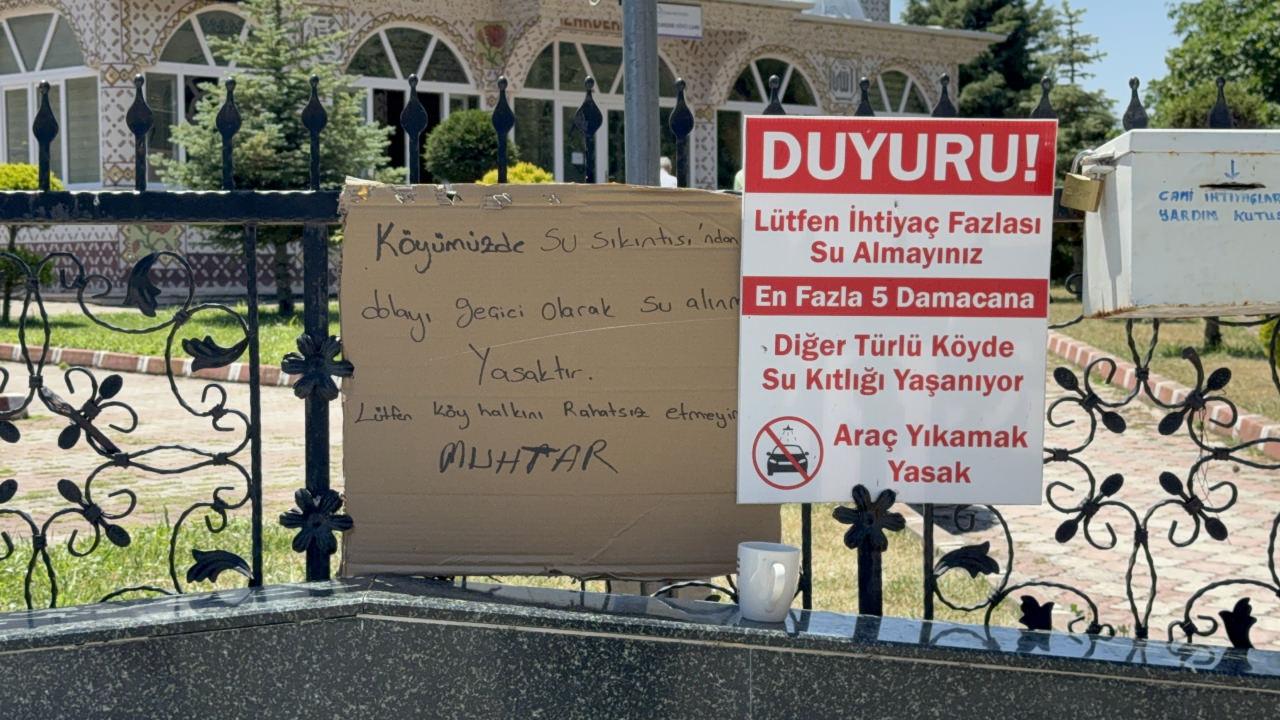 Köyümüzde Su Sıkıntısı'ndan
dolayı geçici olarak su alınm
Yasaktır.
Lütfen köy halkını Rahatsız etmeyin
MUHTAR
DUYURU!
Lütfen İhtiyaç Fazlası
Su Almayınız
En Fazla 5 Damacana
Diğer Türlü Köyde
Su Kıtlığı Yaşanıyor
Araç Yıkamak
Yasak
CAMİ İHTİYAÇLAR
YARDIM KUTUS